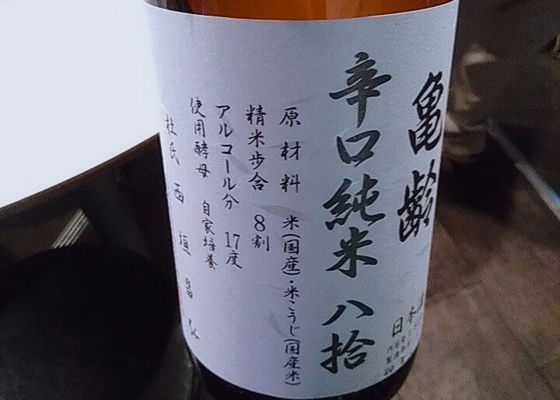 亀齢
辛口純米 八拾
原材料 米(国産)・米こうじ(国産米)
精米歩合 8割
アルコール分 17度
使用酵母 自家培養
杜氏 西垣昌弘
日本酒